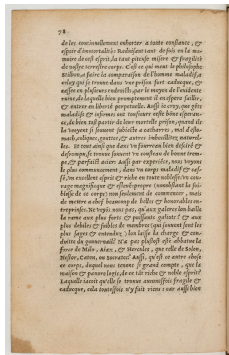 78
de les continuellement enhorter a toute constance, &
espoir d'immortalité: Reduisant tant de fois en la me
moire de cest esprit, la tant piteuse misere & fragilité
de nostre terrestre corps. C'est ce qui meut le philosophe
Bion, a faire la comparaison de l'homme maladif, a
celuy qui se trouve dans une prison fort caducque, &
aussi en plusieurs endroits, par le moyen de l'evidente
ruine, de laquelle bien promptement il espere saillir,
& entrer en liberté perpetuelle. Aussi je croy, que gens
maladifs & informes ont tousjours ceste bone esperan-
ce, de bien tost partir de leur mortelle prison, quand ilz
la voyent si souvent subjecte a catherres, mal d'esto-
mach, coliques, gouttes, & autres imbecillitez naturel-
les. Et tout ainsi que dans un
se trouve souvent un
pe, & parfaict Aussi par experience, nous voyons
le plus communement, dans un corps maladif & cas-
sé, un excellent esprit & riche en toute noblesse: un cou-
rage magnifique & (nonobstant la foi-
blesse de ce corps) non seulement de commencer, mais
de mettre a chef beaucoup de belles & honorables en-
treprinses. Ne voyez nous pas, qu'aux galeres lon baille
la rame aux plus fortz & puissants galiots? & aux
plus debiles & foibles de membres (qui souvent sont les
plus sages & entenduz) lon laisse la charge & con-
duitte du gouvernail? N'a pas plustost esté abbatue la
force de Milo, Aiax, & Hercules, que celle de Solon,
Nestor, Caton, ou Socrates? Aussi, qu'est ce autre chose
ce corps, duquel nous tenons si grand compte, que la
maison & pauvre logis, de ce tāt riche & noble esprit?
Laquelle iaçoit qu'elle se trouve aucunesfois fragile &
caducque, cela toutesfois n'y fait rien: car aussi bien